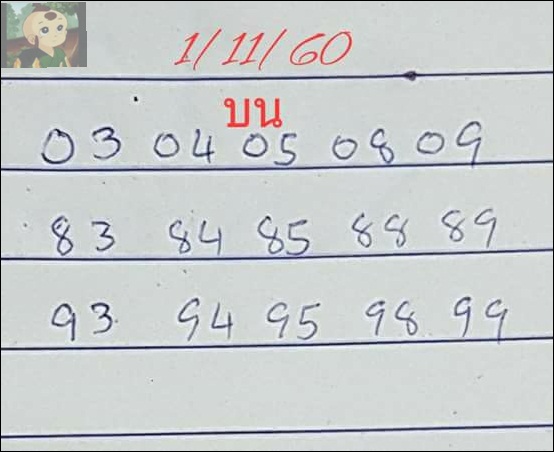 1/11/60
บน
03 04 05 08 09
83 84 85 88 89
93 94 95 98 99